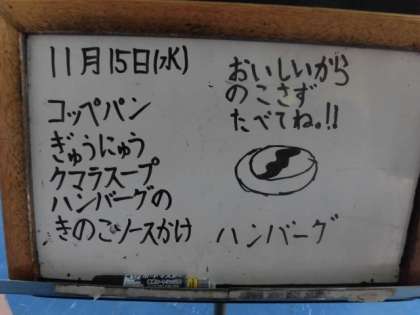 11月15日(水)
コッペパン
ぎゅうにゅう
クマラスープ
ハンバーグの
きのこソースかけ
おいしいから
のこさず
たべてね。!!
ハンバーグ